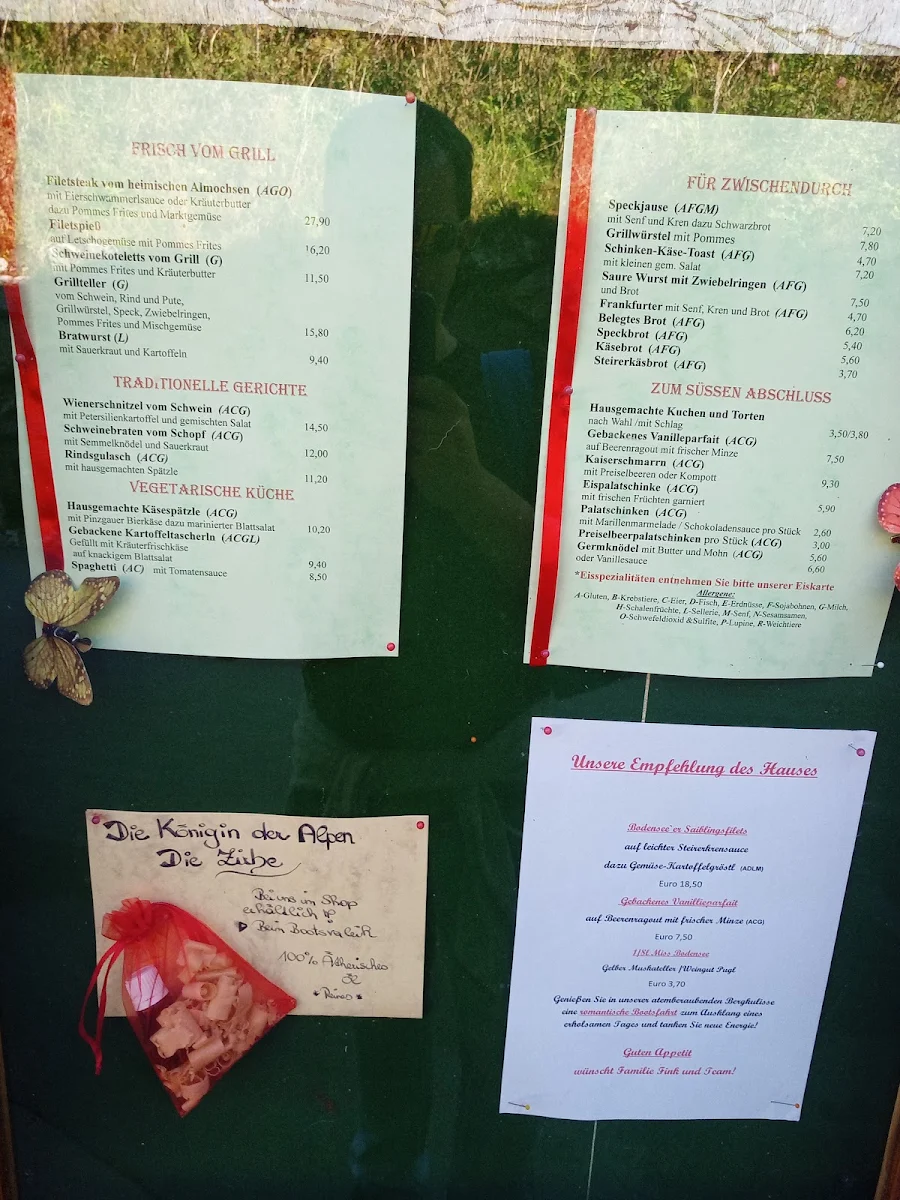 FRISCH VOM GRILL
Filetsteak vom heimischen Almochsen (AGO)
mit Eierschwammerlsauce oder Kräuterbutter
dazu Pommes Frites und Marktgemüse 27,90
Filetspieß
auf Letschogemüse mit Pommes Frites 16,20
Schweinekoteletts vom Grill (G)
mit Pommes Frites und Kräuterbutter 11,50
Grillteller (G)
vom Schwein, Rind und Pute,
Grillwürstel, Speck, Zwiebelringen,
Pommes Frites und Mischgemüse 15,80
Bratwurst (L)
mit Sauerkraut und Kartoffeln 9,40
TRADITIONELLE GERICHTE
Wienerschnitzel vom Schwein (ACG)
mit Petersilienkartoffel und gemischten Salat 14,50
Schweinebraten vom Schopf (ACG)
mit Semmelknödel und Sauerkraut 12,00
Rindsgulasch (ACG)
mit hausgemachten Spätzle 11,20
VEGETARISCHE KÜCHE
Hausgemachte Käsespätzle (ACG)
mit Pinzgauer Bierkäse dazu marinierter Blattsalat 10,20
Gebackene Kartoffeltascherln (ACGL)
Gefüllt mit Kräuterfrischkäse
auf knackigem Blattsalat 9,40
Spaghetti (AC) mit Tomatensauce 8,50
FÜR ZWISCHENDURCH
Speckjause (AFGM)
mit Senf und Kren dazu Schwarzbrot 7,20
Grillwürstel mit Pommes 7,80
Schinken-Käse-Toast (AFG) 4,70
mit kleinen gem. Salat 7,20
Saure Wurst mit Zwiebelringen (AFG)
und Brot 7,50
Frankfurter mit Senf, Kren und Brot (AFG) 4,70
Belegtes Brot (AFG) 6,20
Speckbrot (AFG) 5,40
Käsebrot (AFG) 5,60
Steirerkäsbrot (AFG) 3,70
ZUM SÜSSEN ABSCHLUSS
Hausgemachte Kuchen und Torten
nach Wahl /mit Schlag 3,50/3,80
Gebackenes Vanilleparfait (ACG)
auf Beerenragout mit frischer Minze 7,50
Kaiserschmarrn (ACG)
mit Preiselbeeren oder Kompott 9,30
Eispalatschinke (ACG)
mit frischen Früchten garniert 5,90
Palatschinken (ACG)
mit Marillenmarmelade / Schokoladensauce pro Stück 2,60
Preiselbeerpalatschinken pro Stück (ACG) 3,00
Germknödel mit Butter und Mohn (ACG) 5,60
oder Vanillesauce 6,60
*Eisspezialitäten entnehmen Sie bitte unserer Eiskarte
Allergene:
A-Gluten, B-Krebstiere, C-Eier, D-Fisch, E-Erdnüsse, F-Sojabohnen, G-Milch,
H-Schalenfrüchte, L-Sellerie, M-Senf, N-Sesamsamen,
O-Schwefeldioxid &Sulfite, P-Lupine, R-Weichtiere
Die Königin der Alpen
Die Zirbe
Bei uns im Shop
erhältlich
Beim Bootsverleih
100% Ätherisches
Öl
*Reines*
Unsere Empfehlung des Hauses
Bodensee'er Saiblingsfilets
auf leichter Steirerkrensauce
dazu Gemüse-Kartoffelgröstl (ADLM)
Euro 18,50
Gebackenes Vanillieparfait
auf Beerenragout mit frischer Minze (ACG)
Euro 7,50
1/8l Miss Bodensee
Gelber Muskateller /Weingut Pugl
Euro 3,70
Genießen Sie in unserer atemberaubenden Bergkulisse
eine romantische Bootsfahrt zum Ausklang eines
erholsamen Tages und tanken Sie neue Energie!
Guten Appetit
wünscht Familie Fink und Team!